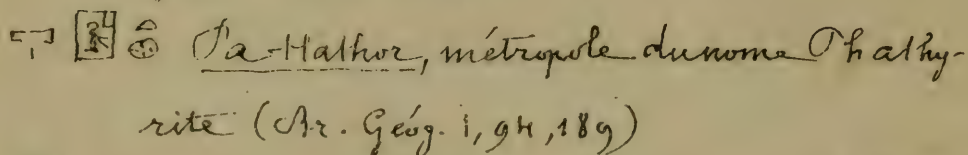 𓉐𓏤 𓉡 𓏏𓊖 Pa-Hathor, métropole du nome Phathy-
rite (Br. Géog. i, 94, 189)